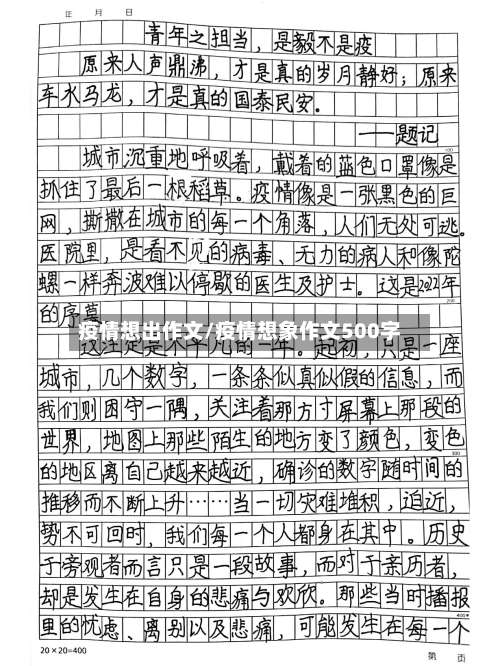 年 月 日
青年之担当，是毅不是疫
原来人声鼎沸，才是真的岁月静好；原来
车水马龙，才是真的国泰民安。
——题记
100
城市沉重地呼吸着，戴着的蓝色口罩像是
抓住了最后一根稻草。疫情像是一张黑色的巨
网，撕撒在城市的每一个角落，人们无处可逃。
医院里，是看不见的病毒、无力的病人和像陀
螺一样奔波难以停歇的医生及护士。这是2021年
200
的序幕
疫情想出作文/疫情想象作文500字
这注定是不平凡的一年。起初，只是一座
城市，几个数字，一条条似真似假的信息，而
我们则困守一隅，关注着那方寸屏幕上那段的
世界，地图上那些陌生的地方变了颜色，变色
300
的地区离自己越来越近，确诊的数字随时间的
推移而不断上升……当一切灾难堆积，迫近，
势不可回时，我们每一个人都身在其中。历史
于旁观者而言只是一段故事，而对于亲历者，
却是发生在自身的悲痛与欢欣。那些当时播报
400
里的忧虑、离别以及悲痛，可能发生在每一个
20×20=400
第 页